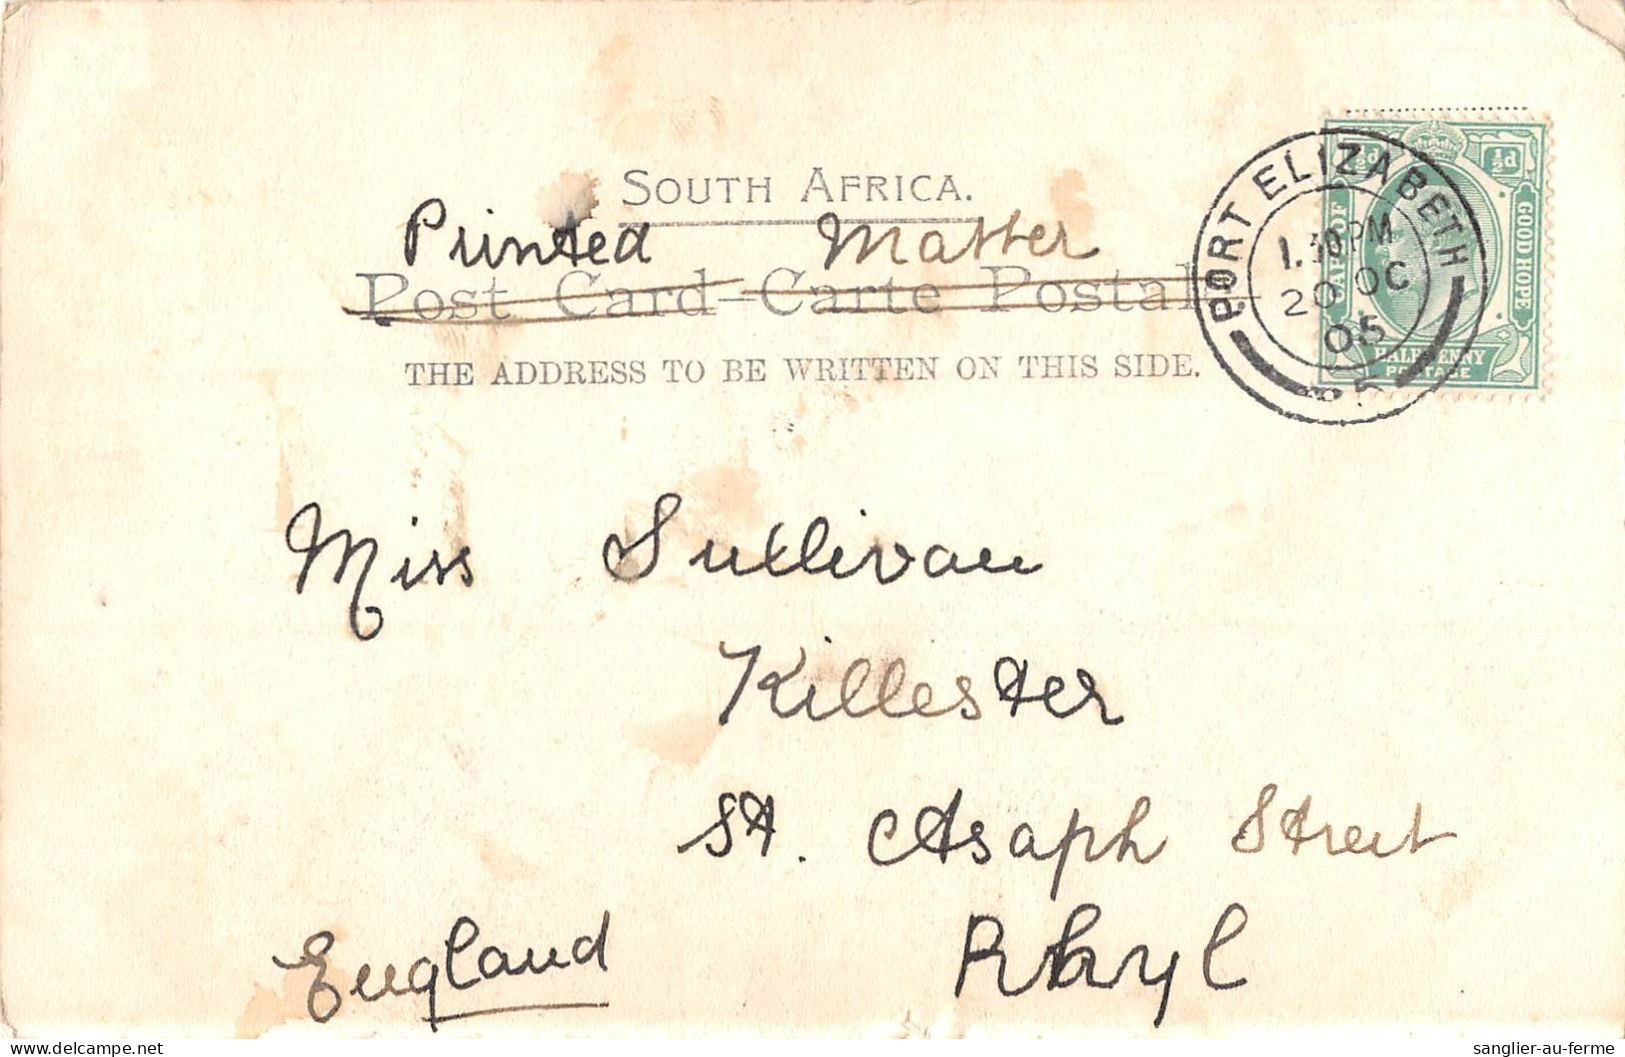 SOUTH AFRICA.
Printed Matter
Post Card–Carte Postale
THE ADDRESS TO BE WRITTEN ON THIS SIDE.
PORT ELIZABETH
1.30 PM
20 OC
05
½d ½d
CAPE OF GOOD HOPE
HALFPENNY
POSTAGE
Miss Sullivan
Killester
St. Asaph Street
Rhyl
England
delcampe.net
sanglier-au-ferme